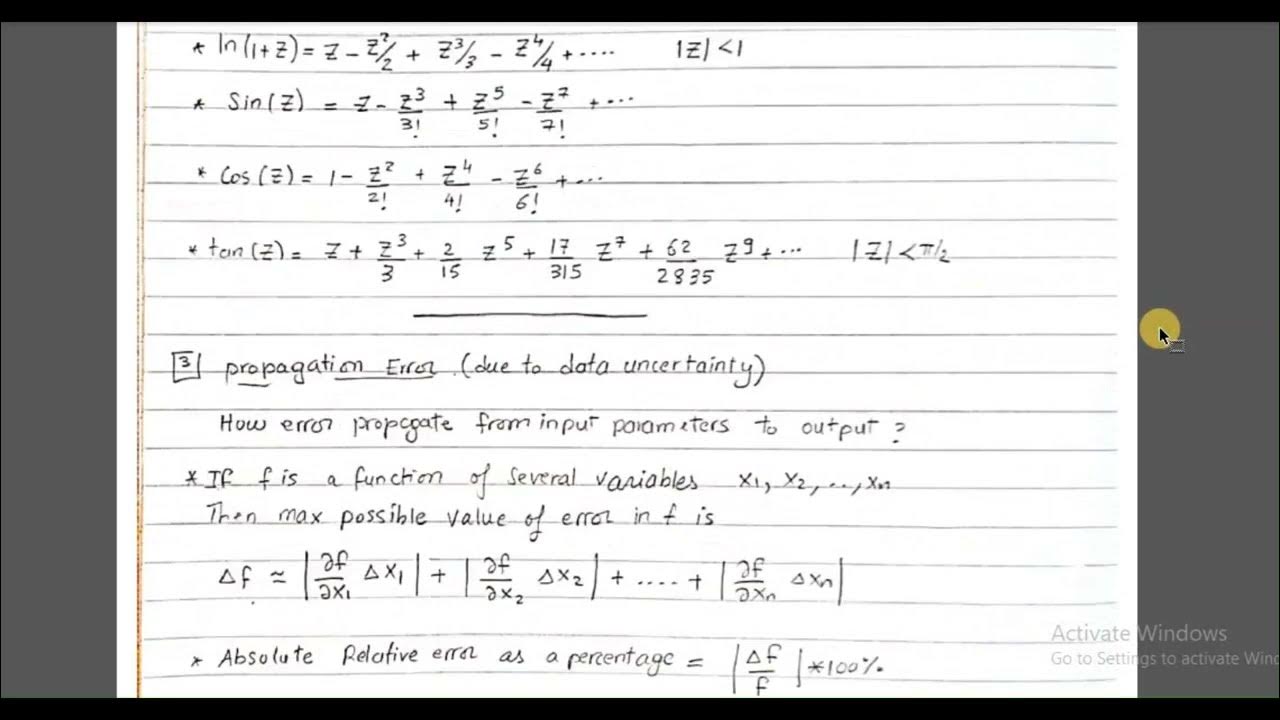 * ln(1+z) = z - z²/2 + z³/3 - z⁴/4 + .... |z| < 1
* Sin(z) = z - z³/3! + z⁵/5! - z⁷/7! + ...
* Cos(z) = 1 - z²/2! + z⁴/4! - z⁶/6! + ...
* tan(z) = z + z³/3 + 2/15 z⁵ + 17/315 z⁷ + 62/2835 z⁹ + ... |z| < π/2
3 propagation Error (due to data uncertainty)
How error propagate from input parameters to output?
* If f is a function of several variables x₁, x₂, .., xₙ
Then max possible value of error in f is
Δf ≃ |∂f/∂x₁ Δx₁| + |∂f/∂x₂ Δx₂| + .... + |∂f/∂xₙ Δxₙ|
* Absolute Relative error as a percentage = |Δf/f| * 100%
Activate Windows
Go to Settings to activate Wind